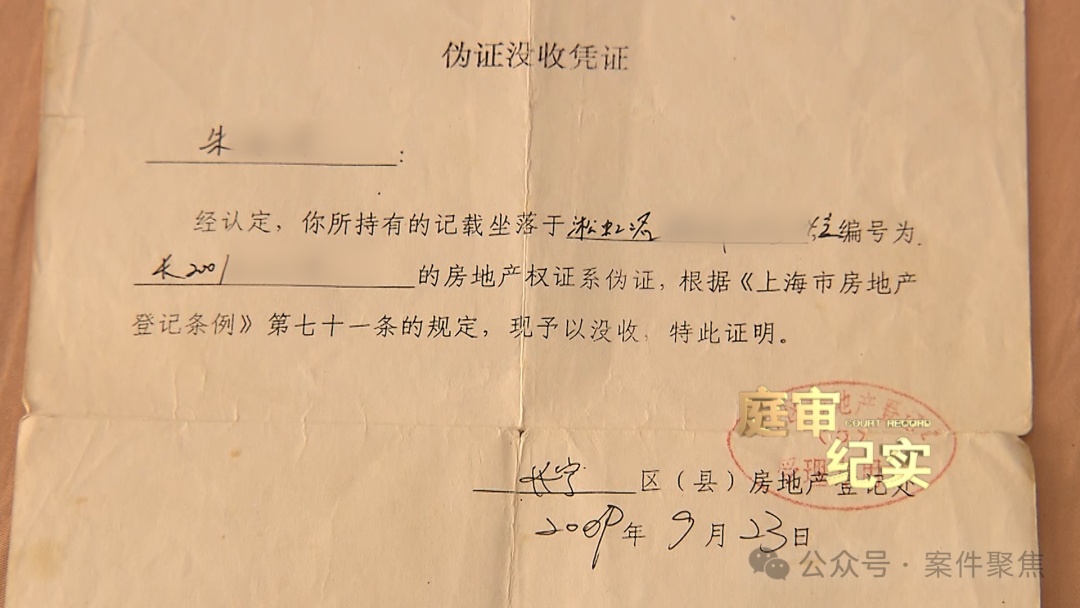 伪证没收凭证
朱 :
经认定，你所持有的记载坐落于淞虹路 编号为
长2001 的房地产权证系伪证，根据《上海市房地产
登记条例》第七十一条的规定，现予以没收，特此证明。
庭审
COURT RECORD
纪实
长宁区（县）房地产登记处
2009年9月23日
公众号·案件聚焦